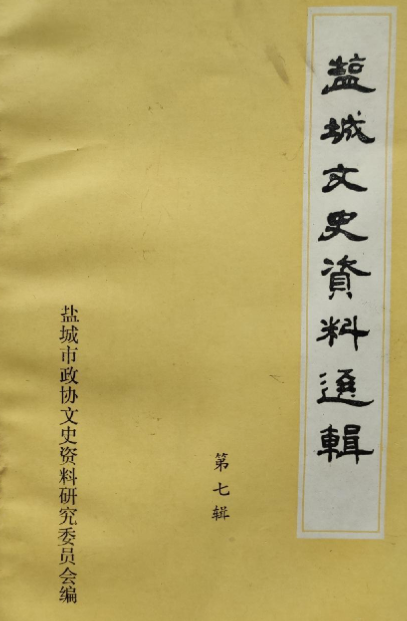 盐城文史資料選輯
第七辑
盐城市政协文史资料研究委员会编